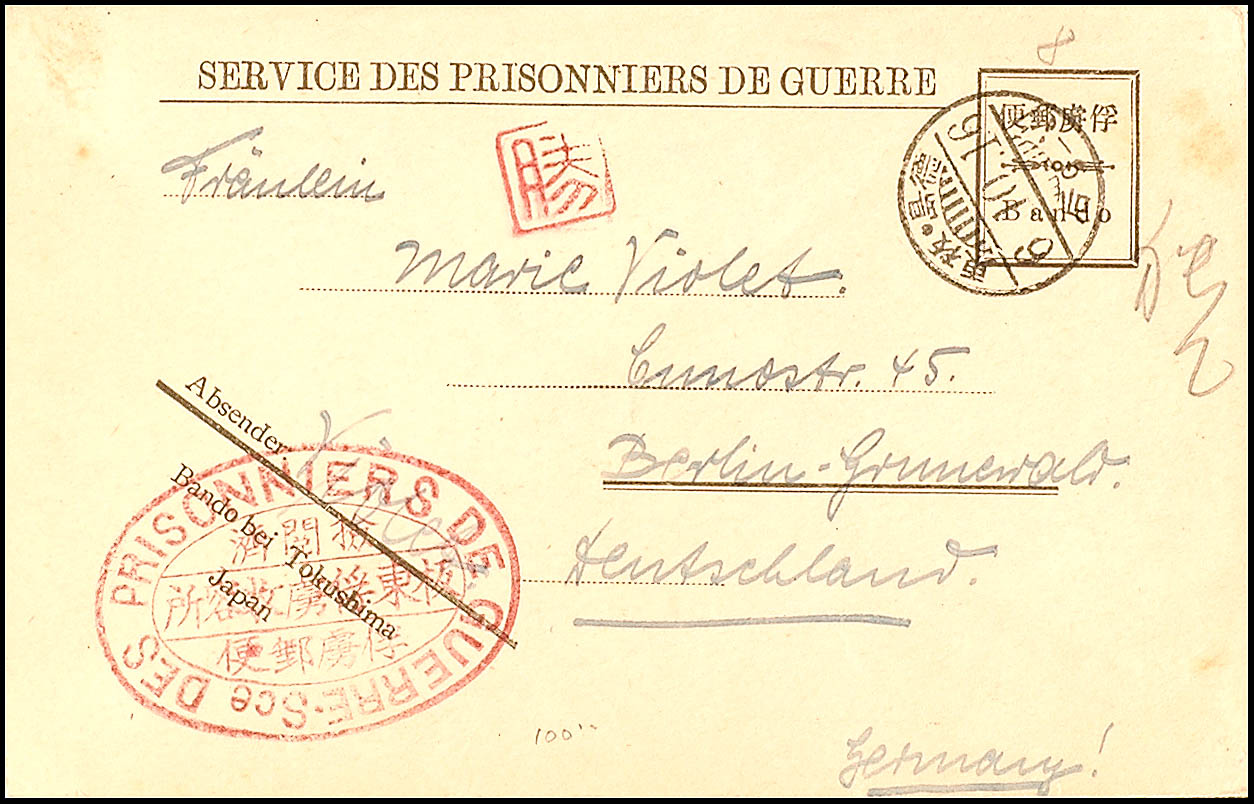 8
SERVICE DES PRISONNIERS DE GUERRE
便郵虜俘
Bando
徳島・板東
9.10.16
勝
Fräulein
Marie Violet.
Cunostr. 45.
Berlin-Grunewald.
Deutschland.
Germany!
Absender.
Bando bei Tokushima
Japan
PRISONNIERS DE GUERRE-Sce DES
所容收虜俘東板
便郵虜俘
100